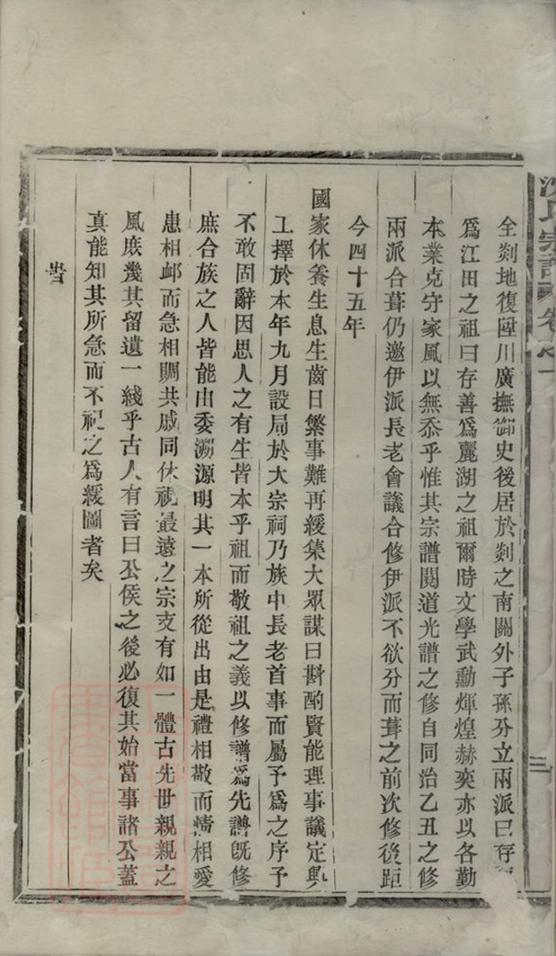 宗譜 卷之一
全剡地復陞川廣撫御史後居於剡之南關外子孫分立兩派曰存
爲江田之祖曰存善爲麗湖之祖爾時文學武勳輝煌赫奕亦以各勤
本業克守家風以無忝乎惟其宗譜閱道光譜之修自同治乙丑之修
兩派合葺仍邀伊派長老會議合修伊派不欲分而葺之前次修後距
今四十五年
國家休養生息生齒日繁事難再緩集大眾謀曰斟酌賢能理事議定興
工擇於本年九月設局於大宗祠乃族中長老首事而屬予爲之序予
不敢固辭因思人之有生皆本乎祖而敬祖之義以修譜爲先譜旣修
庶合族之人皆能由委溯源明其一本所從出由是禮相敬而情相愛
患相卹而急相賙共戚同休視最遠之宗支有如一體古先世親親之
風庶幾其留遺一綫乎古人有言曰公侯之後必復其始當事諸公蓋
真能知其所急而不視之爲緩圖者矣
旹
二